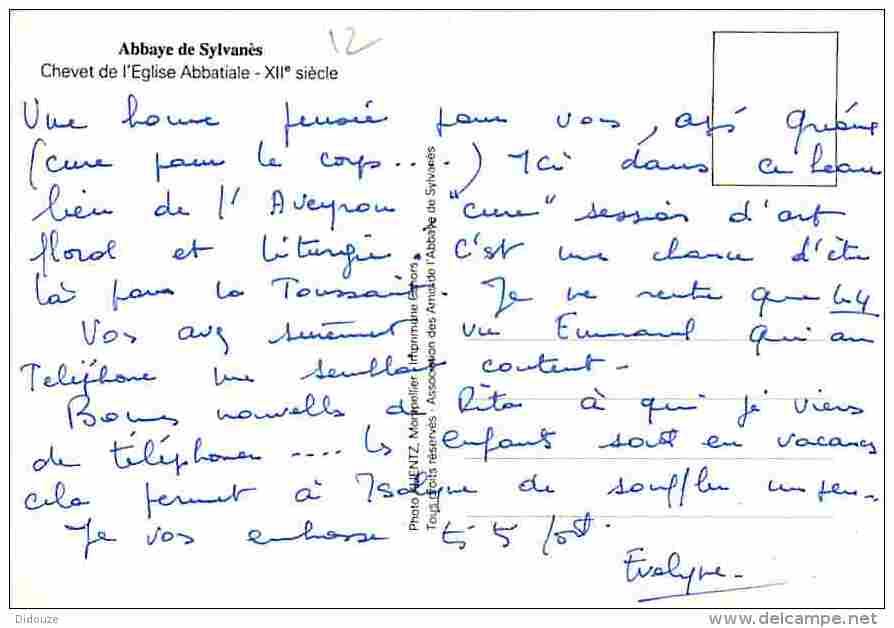 12
Abbaye de Sylvanès
Chevet de l'Eglise Abbatiale - XIIe siècle
Une bonne pensée pour vous,
(cure pour le corps....) Ici dans ce beau
lieu de l'Aveyron "cure" session d'art
floral et liturgie. C'est une chance d'être
là pour la Toussaint. Je ne rentre que le 4
Vous avez sûrement vu Emmanuel qui au
Téléphone me semblait content -
Bonnes nouvelles de Rita à qui je viens
de téléphoner .... les enfants sont en vacances
cela permet à de souffler un peu -
Je vous embrasse fort.
Evelyne -
Photo Montpellier - Imprimerie
Tous droits réservés - Association des Amis de l'Abbaye de Sylvanès
Didouze
www.delcampe.net